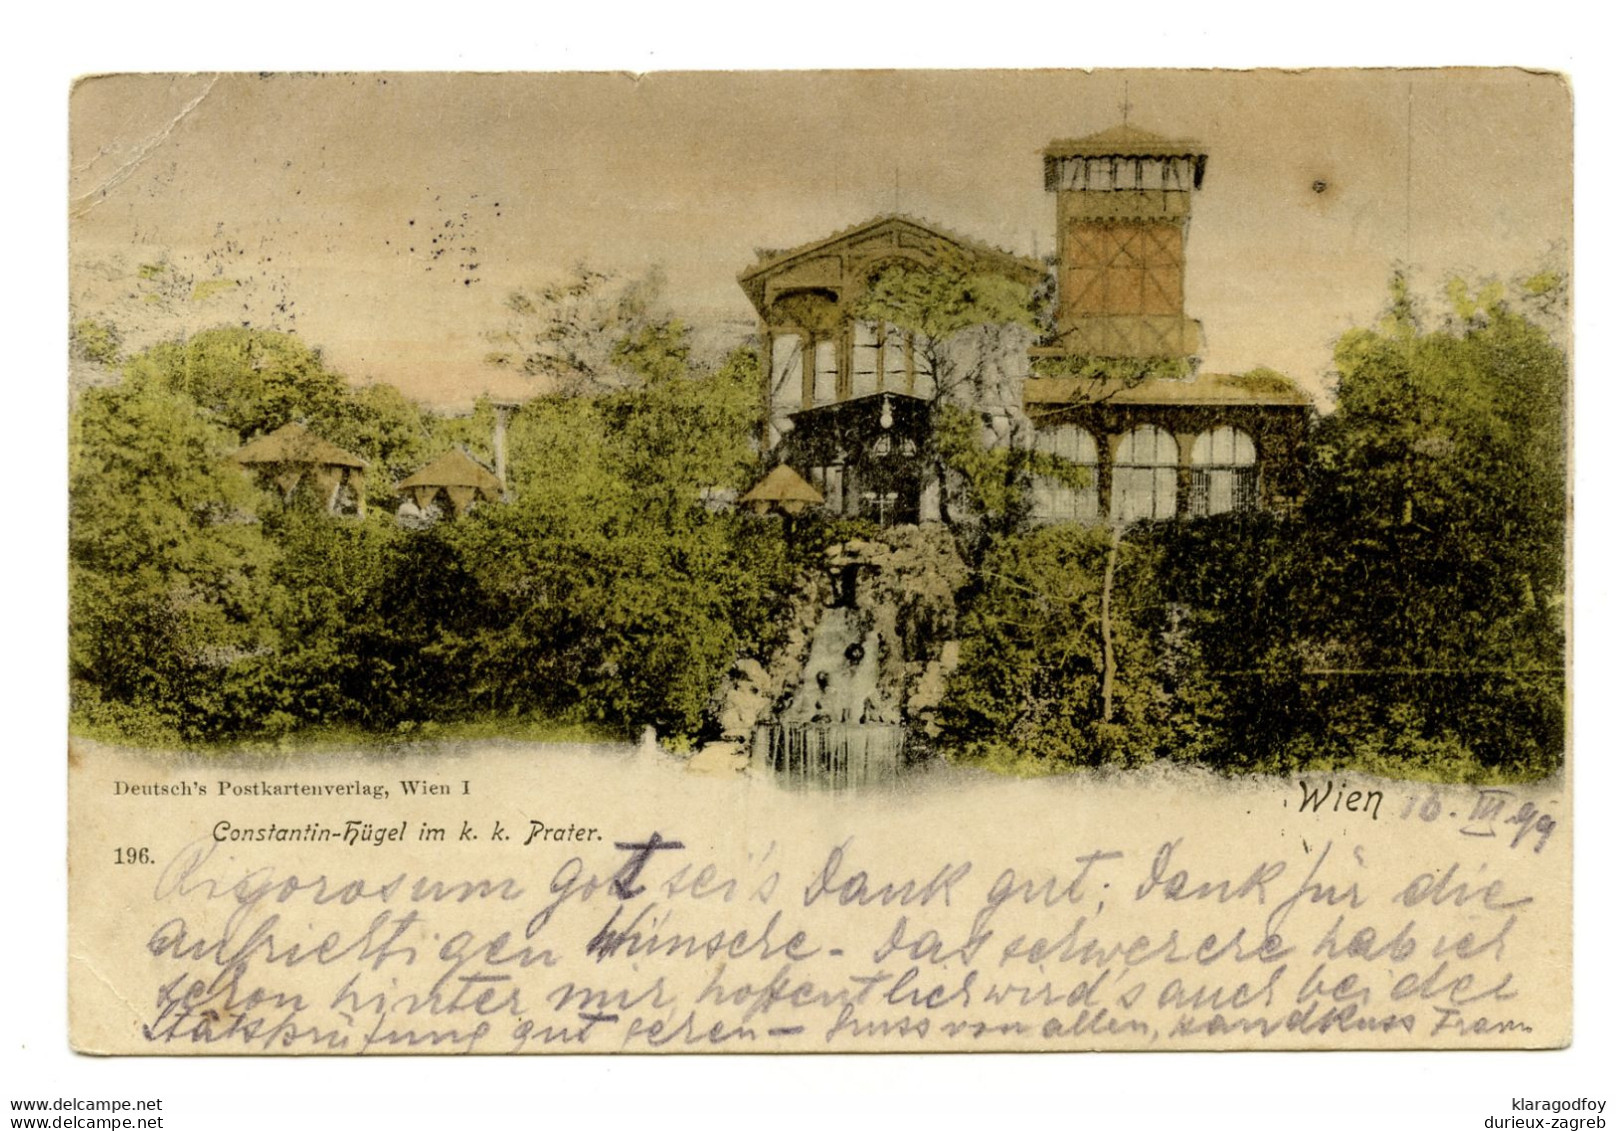 Deutsch's Postkartenverlag, Wien I
Wien 10. III 99
Constantin-Hügel im k. k. Prater.
196.
Rigorosum Gott sei's Dank gut; Dank für die
aufrichtigen Wünsche - Das schwerere hab ich
schon hinter mir, hoffentlich wird's auch bei der
Statsprüfung gut gehen - Gruss von allen, Handkuss Franz
klaragodfoy
durieux-zagreb
klaragodfoy on delcampe.net
durieux-zagreb